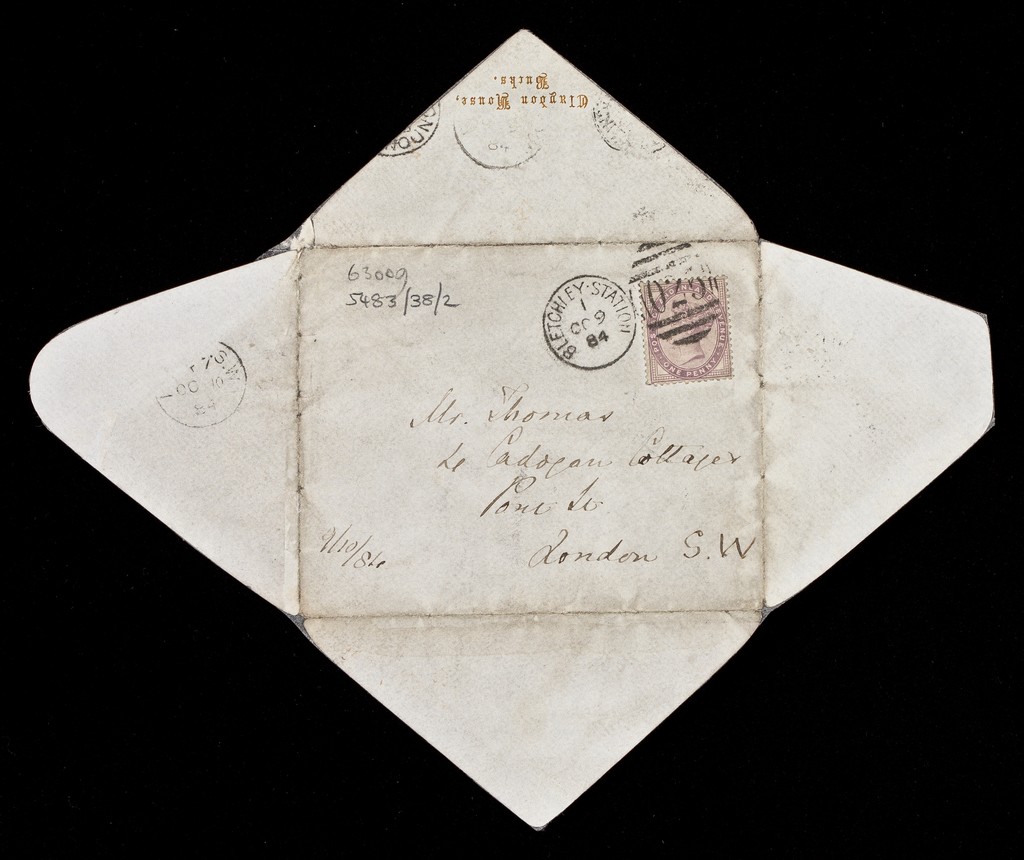 Claydon House,
Bucks.
84
LONDON
63009
5483/38/2
BLETCHLEY·STATION
1
OC 9
84
ONE PENNY
S.W
OC 10
84
Mr. Thomas
4 Cadogan Cottages
Pont St
London S.W
9/10/84